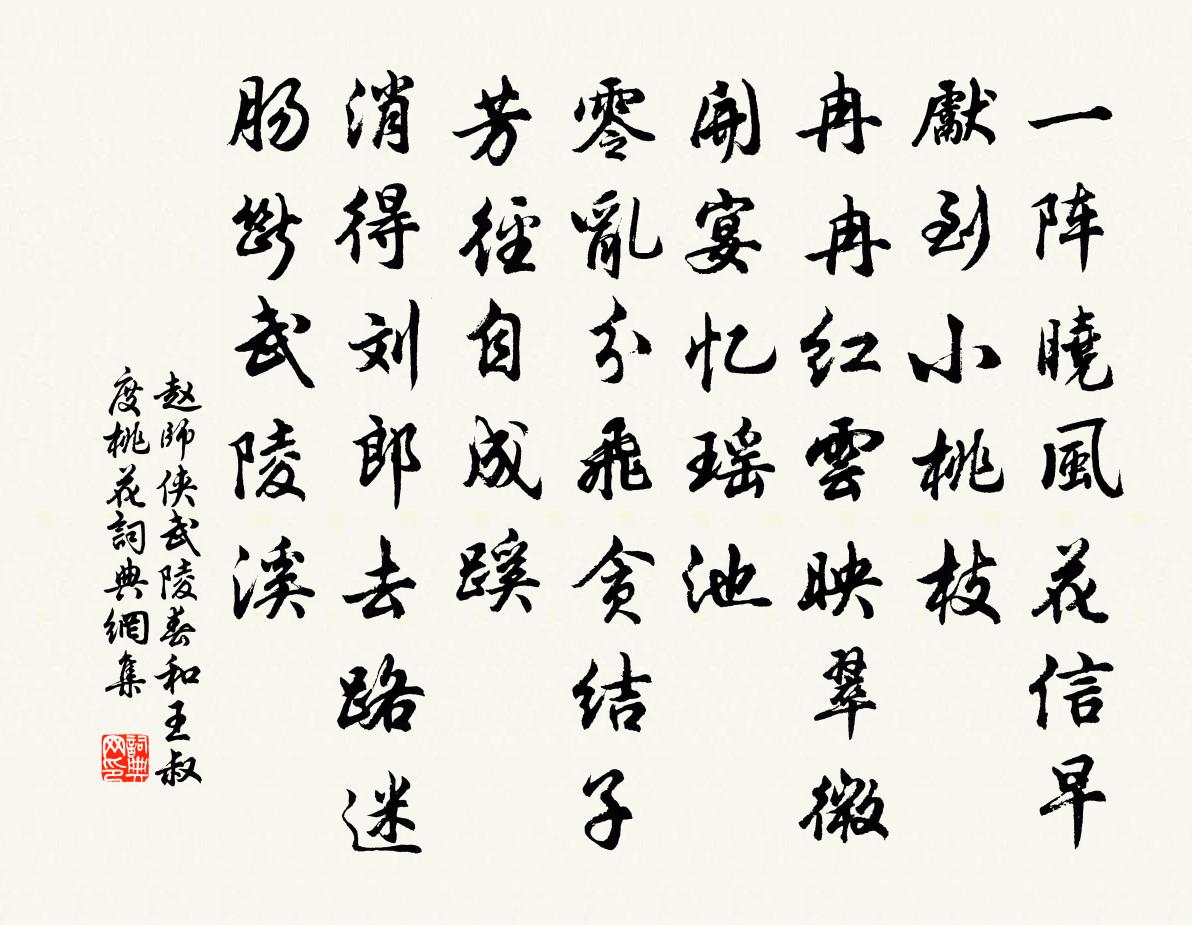 一阵曉風花信早
獻到小桃枝
冉冉红雲映翠微
開宴忆瑶池
零亂分飛贪结子
芳徑自成蹊
消得刘郎去路迷
肠斷武陵溪
赵師侠武陵春和王叔
度桃花詞典網集
詞典
网印